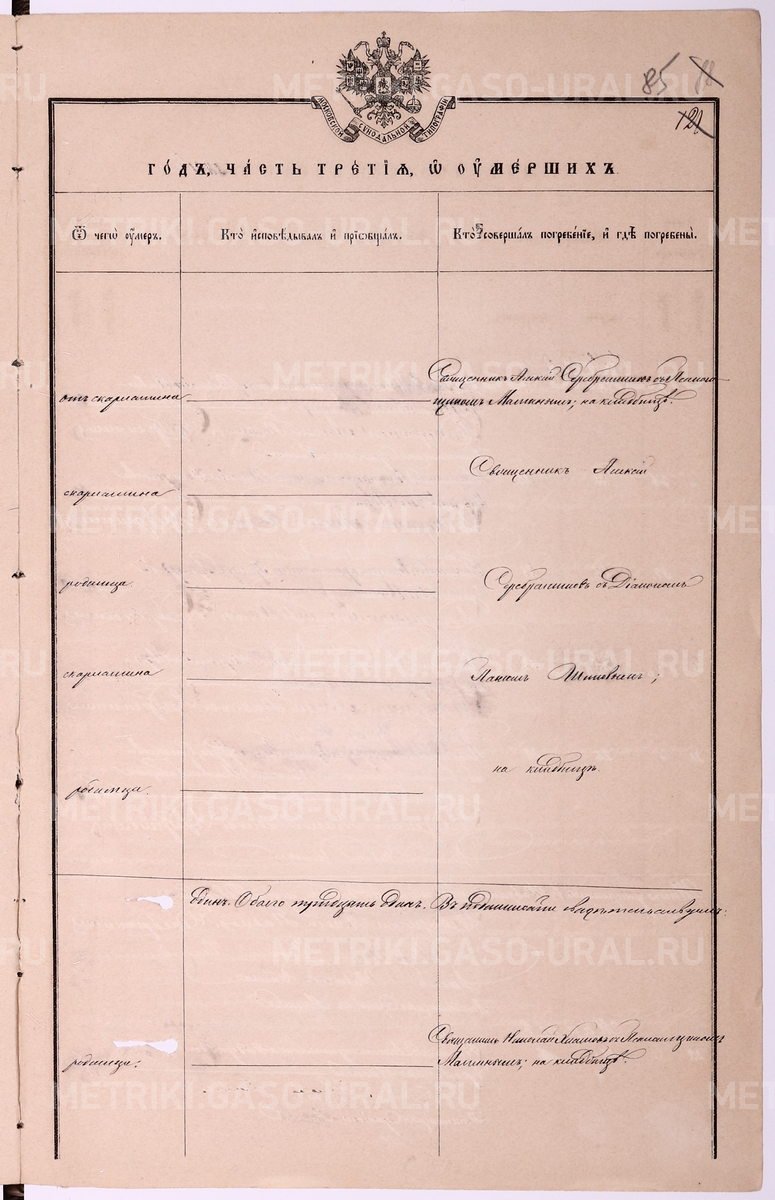 85
МОСКОВСКОЙ СѴНОДАЛЬНОЙ ТИПОГРАФІИ
ГОДЪ, ЧАСТЬ ТРЕТІЯ, Ѡ ОУМЕРШИХЪ.
Ѿ чегѡ оумеръ.
Кто исповѣдывалъ и пріобщалъ.
Кто совершалъ погребеніе, и гдѣ погребены.
отъ скарлатина
Священникъ Алексій Серебренниковъ съ Псалом-
щикомъ Малининымъ; на кладбищѣ.
скарлатина
Священникъ Алексій
родимца
Серебренниковъ съ Діакономъ
скарлатина
на кладбищѣ.
родимца.
Одинъ. Обоего тридцать одинъ.
родимца.
Священникъ Николай съ Псаломщикомъ
Малининымъ; на кладбищѣ.
METRIKI.GASO-URAL.RU